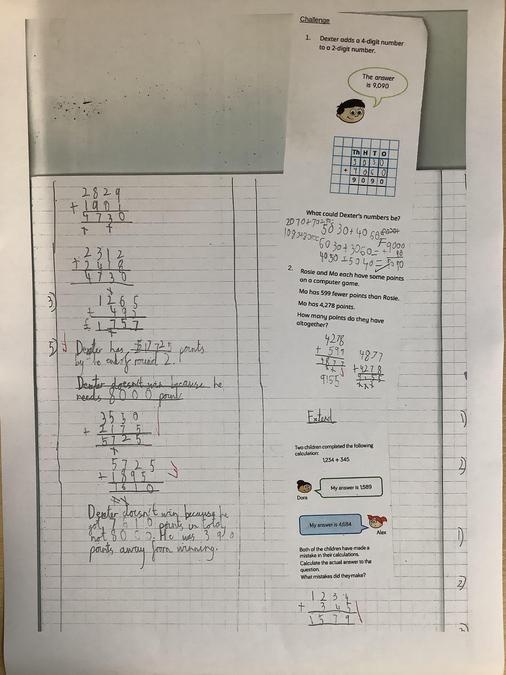 2829
+ 1901
4730
2312
+ 2418
4730
3)
1265
+ 492
1757
5)
Dexter has 5725 points
by the end of round 2.
Dexter doesn't win because he
needs 8000 points
3550
+ 2175
5725
5725
+ 1895
7610
Dexter doesn't win because he
got 7610 points in total
not 8000. He was 390
points away from winning.
Challenge
1. Dexter adds a 4-digit number
to a 2-digit number.
The answer
is 9,090
Th H T O
5 0 3 0
+ 4 0 6 0
9 0 9 0
What could Dexter's numbers be?
5030+4060
6030+3060=
4050+5040=
2. Rosie and Mo each have some points
on a computer game.
Mo has 599 fewer points than Rosie.
Mo has 4,278 points.
How many points do they have
altogether?
4278
+ 599
4877
4877
+4278
9155
9155
Extend
Two children completed the following
calculation:
1,234 + 345
My answer is 1,589
Dora
My answer is 4,684
Alex
Both of the children have made a
mistake in their calculations.
Calculate the actual answer to the
question.
What mistakes did they make?
1234
+ 345
1579
1)
2)
1)
2)